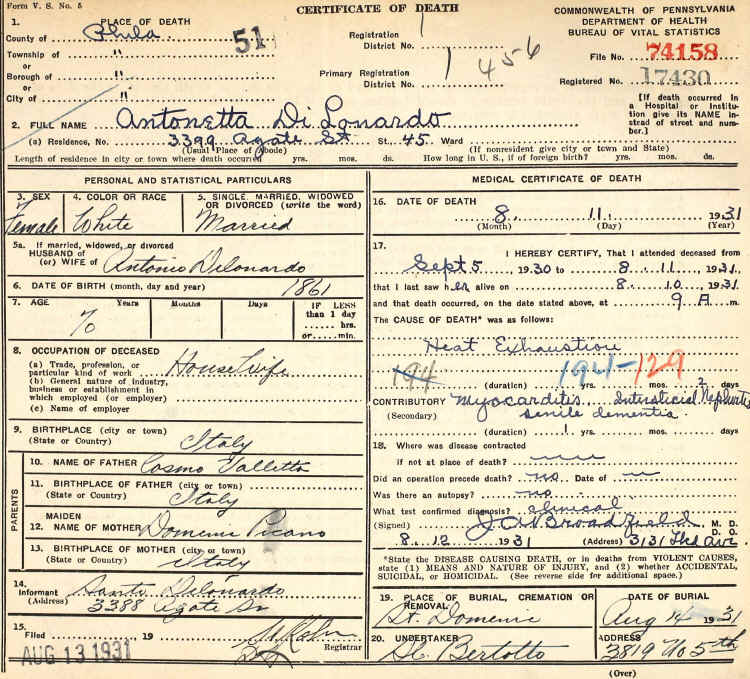 Form V. S. No. 5
CERTIFICATE OF DEATH
COMMONWEALTH OF PENNSYLVANIA
DEPARTMENT OF HEALTH
BUREAU OF VITAL STATISTICS
1. PLACE OF DEATH
County of Phila
Township of "
or
Borough of "
or
City of "
51
Registration
District No. 1
Primary Registration
District No. 1
456
File No. 74158
Registered No. 17430
[If death occurred in
a Hospital or Institu-
tion give its NAME in-
stead of street and num-
ber.]
2. FULL NAME Antonetta Di Lonardo
(a) Residence, No. 3399 Agate St St. 45 Ward
(Usual Place of Abode) (If nonresident give city or town and State)
Length of residence in city or town where death occurred yrs. mos. ds. How long in U. S., if of foreign birth? yrs. mos. ds.
PERSONAL AND STATISTICAL PARTICULARS
3. SEX
Female
4. COLOR OR RACE
White
5. SINGLE, MARRIED, WIDOWED
OR DIVORCED (write the word)
Married
5a. If married, widowed, or divorced
HUSBAND OF
(or) WIFE OF Antonio Dilonardo
6. DATE OF BIRTH (month, day and year) 1861
7. AGE Years Months Days IF LESS
than 1 day
hrs.
or min.
70
8. OCCUPATION OF DECEASED
(a) Trade, profession, or
particular kind of work House Wife
(b) General nature of industry,
business or establishment in
which employed (or employer)
(c) Name of employer
9. BIRTHPLACE (city or town)
(State or Country) Italy
PARENTS
10. NAME OF FATHER Cosmo Talletta
11. BIRTHPLACE OF FATHER (city or town)
(State or Country) Italy
MAIDEN
12. NAME OF MOTHER Domenic Picano
13. BIRTHPLACE OF MOTHER (city or town)
(State or Country) Italy
14. Informant Santo Dilonardo
(Address) 3388 Agate St
15. Filed 19
AUG 13 1931
Registrar
MEDICAL CERTIFICATE OF DEATH
16. DATE OF DEATH
8 11 1931
(Month) (Day) (Year)
17. I HEREBY CERTIFY, That I attended deceased from
Sept 5 1930 to 8 11 1931
that I last saw her alive on 8 10 1931
and that death occurred, on the date stated above, at 9 A m.
The CAUSE OF DEATH* was as follows:
Heat Exhaustion
194 191-129
(duration) yrs. mos. 2 days
CONTRIBUTORY Myocarditis Intersticial Nephritis
(Secondary) senile dementia
(duration) 1 yrs. mos. days
18. Where was disease contracted
if not at place of death?
Did an operation precede death? no Date of
Was there an autopsy? no
What test confirmed diagnosis? clinical
(Signed) J A Broadfield M. D.
D. O.
8 12 1931 (Address) 3131
*State the DISEASE CAUSING DEATH, or in deaths from VIOLENT CAUSES,
state (1) MEANS AND NATURE OF INJURY, and (2) whether ACCIDENTAL,
SUICIDAL, or HOMICIDAL. (See reverse side for additional space.)
19. PLACE OF BURIAL, CREMATION OR
REMOVAL
St. Domenic
DATE OF BURIAL
Aug 14 1931
20. UNDERTAKER
Bertotto
ADDRESS
3819 No 5th
(Over)